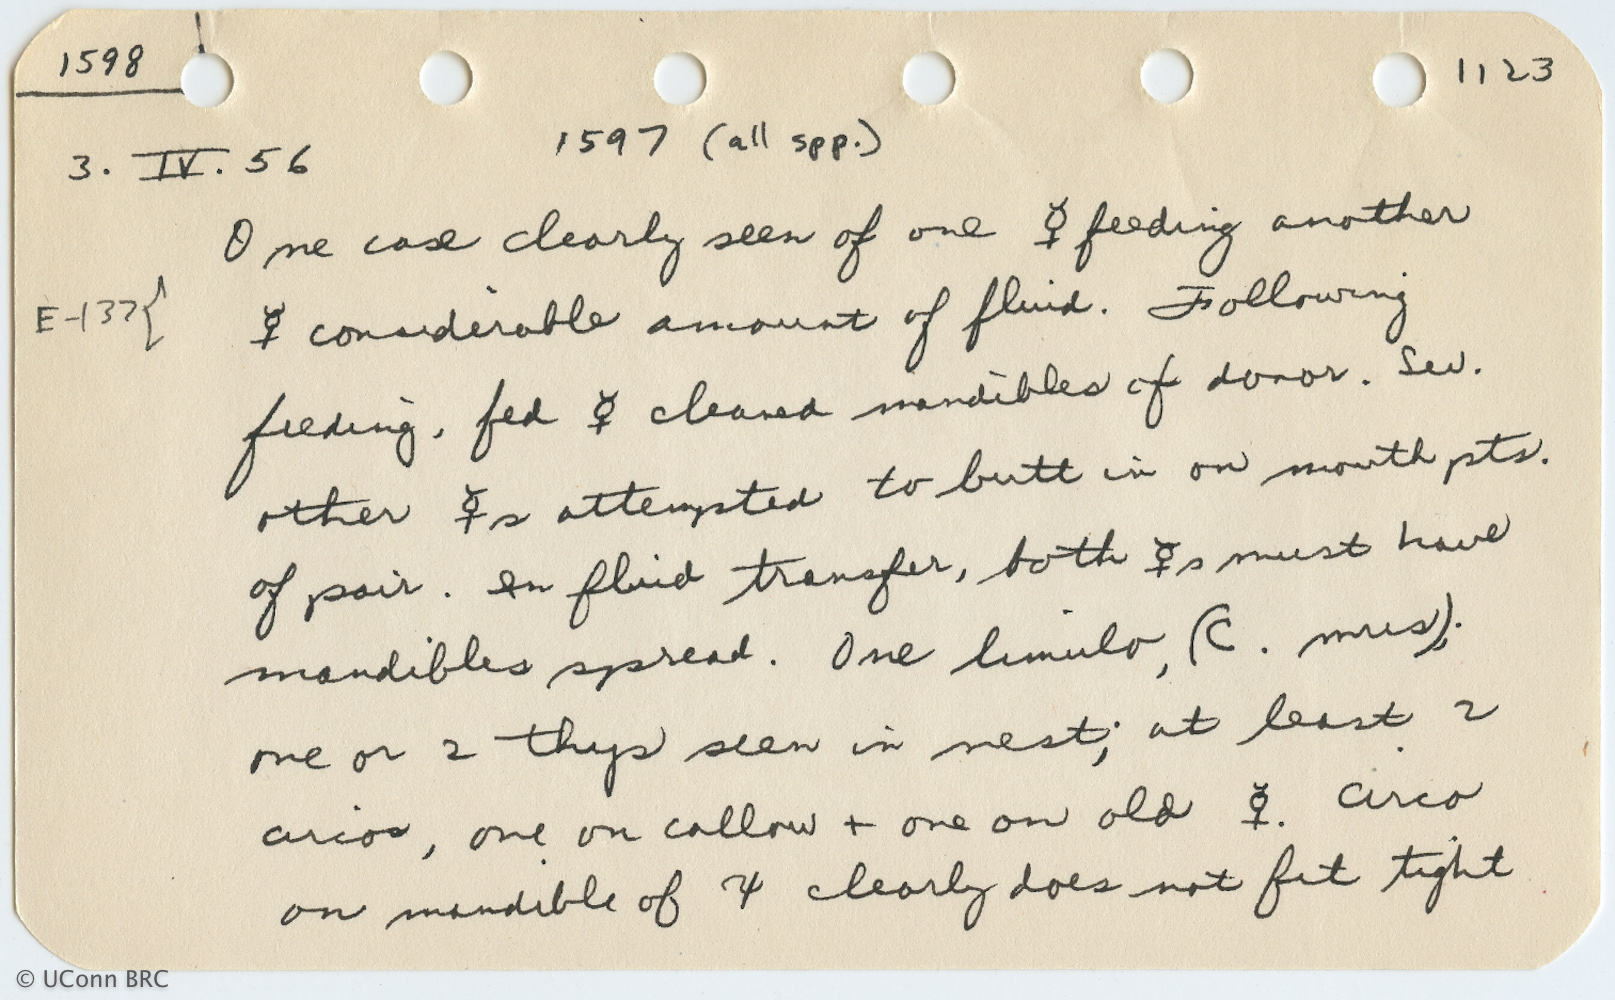 1598
1123
1597 (all spp.)
3. IV. 56
One case clearly seen of one ☿ feeding another
E-137{
☿ considerable amount of fluid. Following
feeding, fed ☿ cleaned mandibles of donor. Sev.
other ☿s attempted to butt in on mouth pts.
of pair. In fluid transfer, both ☿s must have
mandibles spread. One limulo, (C. mus).
one or 2 thys seen in nest; at least 2
circos, one on callow + one on old ☿. Circo
on mandible of ♃ clearly does not fit tight
© UConn BRC